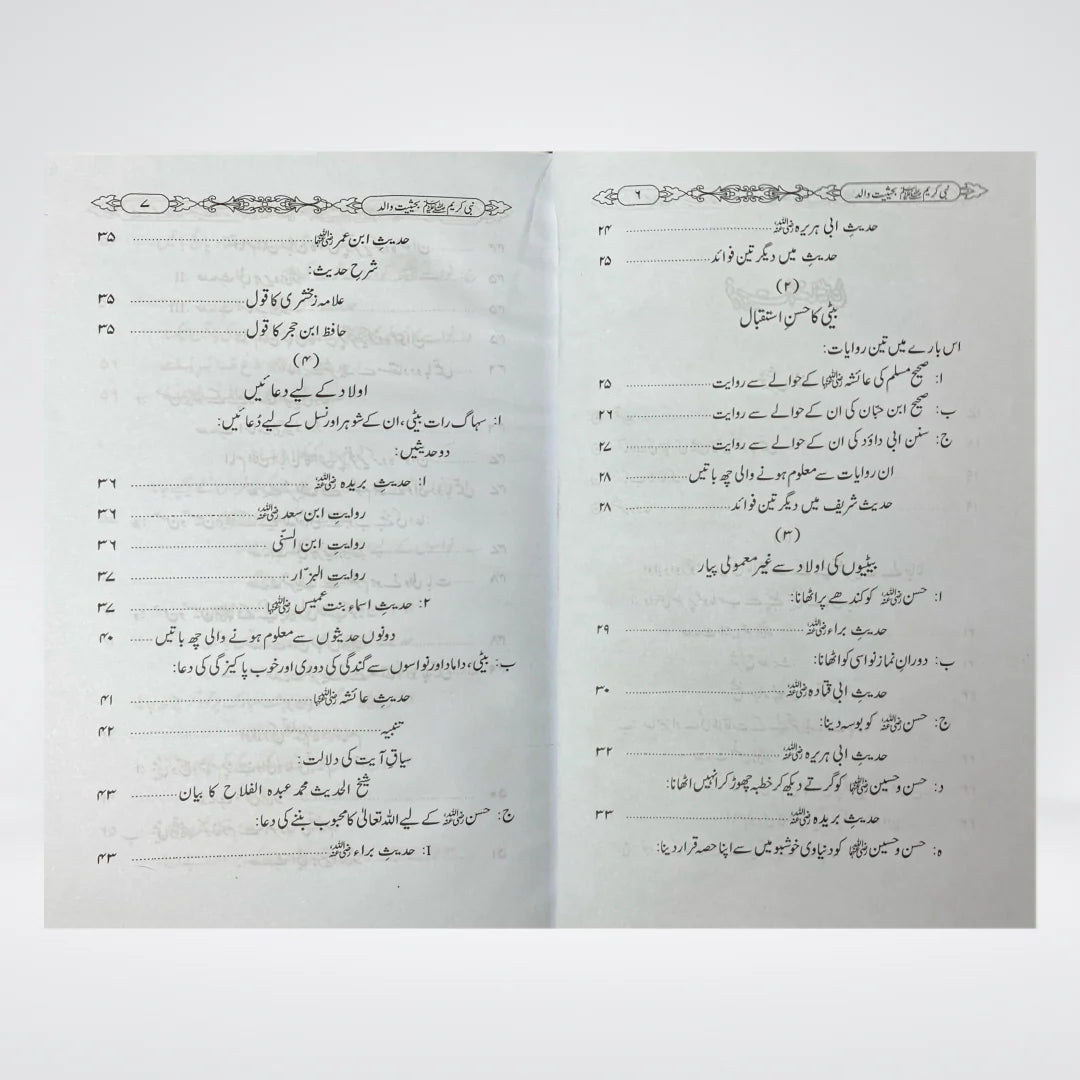 نبی کریم ﷺ بحیثیت والد ۶
حدیثِ ابی ہریرہ رضی اللہ عنہ ........ ۲۴
حدیث میں دیگر تین فوائد ........ ۲۵
(۲)
بیٹی کا حسنِ استقبال
اس بارے میں تین روایات:
ا: صحیح مسلم کی عائشہ رضی اللہ عنہا کے حوالے سے روایت ........ ۲۵
ب: صحیح ابن حبّان کی ان کے حوالے سے روایت ........ ۲۶
ج: سنن ابی داؤد کی ان کے حوالے سے روایت ........ ۲۷
ان روایات سے معلوم ہونے والی چھ باتیں ........ ۲۸
حدیث شریف میں دیگر تین فوائد ........ ۲۸
(۳)
بیٹیوں کی اولاد سے غیر معمولی پیار
ا: حسن رضی اللہ عنہ کو کندھے پر اٹھانا:
حدیثِ براء رضی اللہ عنہ ........ ۲۹
ب: دورانِ نماز نواسی کو اٹھانا:
حدیثِ ابی قتادہ رضی اللہ عنہ ........ ۳۰
ج: حسن رضی اللہ عنہ کو بوسہ دینا:
حدیثِ ابی ہریرہ رضی اللہ عنہ ........ ۳۲
د: حسن و حسین رضی اللہ عنہما کو گرتے دیکھ کر خطبہ چھوڑ کر انہیں اٹھانا:
حدیثِ بریدہ رضی اللہ عنہ ........ ۳۳
ہ: حسن و حسین رضی اللہ عنہما کو دنیاوی خوشبو میں سے اپنا حصہ قرار دینا:
نبی کریم ﷺ بحیثیت والد ۷
حدیثِ ابن عمر رضی اللہ عنہما ........ ۳۵
شرحِ حدیث:
علامہ زمخشری کا قول ........ ۳۵
حافظ ابن حجر کا قول ........ ۳۵
(۴)
اولاد کے لیے دعائیں
ا: سہاگ رات بیٹی، ان کے شوہر اور نسل کے لیے دُعائیں:
دو حدیثیں:
۱: حدیثِ بریدہ رضی اللہ عنہ ........ ۳۶
روایتِ ابن سعد رضی اللہ عنہ ........ ۳۶
روایتِ ابن السنّی ........ ۳۶
روایتِ البزّار ........ ۳۷
۲: حدیثِ اسماء بنت عمیس رضی اللہ عنہا ........ ۳۷
دونوں حدیثوں سے معلوم ہونے والی چھ باتیں ........ ۴۰
ب: بیٹی، داماد اور نواسوں سے گندگی کی دوری اور خوب پاکیزگی کی دعا:
حدیثِ عائشہ رضی اللہ عنہا ........ ۴۱
تنبیہ ........ ۴۲
سیاقِ آیت کی دلالت:
شیخ الحدیث محمد عبدہ الفلاح کا بیان ........ ۴۳
ج: حسن رضی اللہ عنہ کے لیے اللہ تعالیٰ کا محبوب بننے کی دعا:
I: حدیثِ براء رضی اللہ عنہ ........ ۴۳